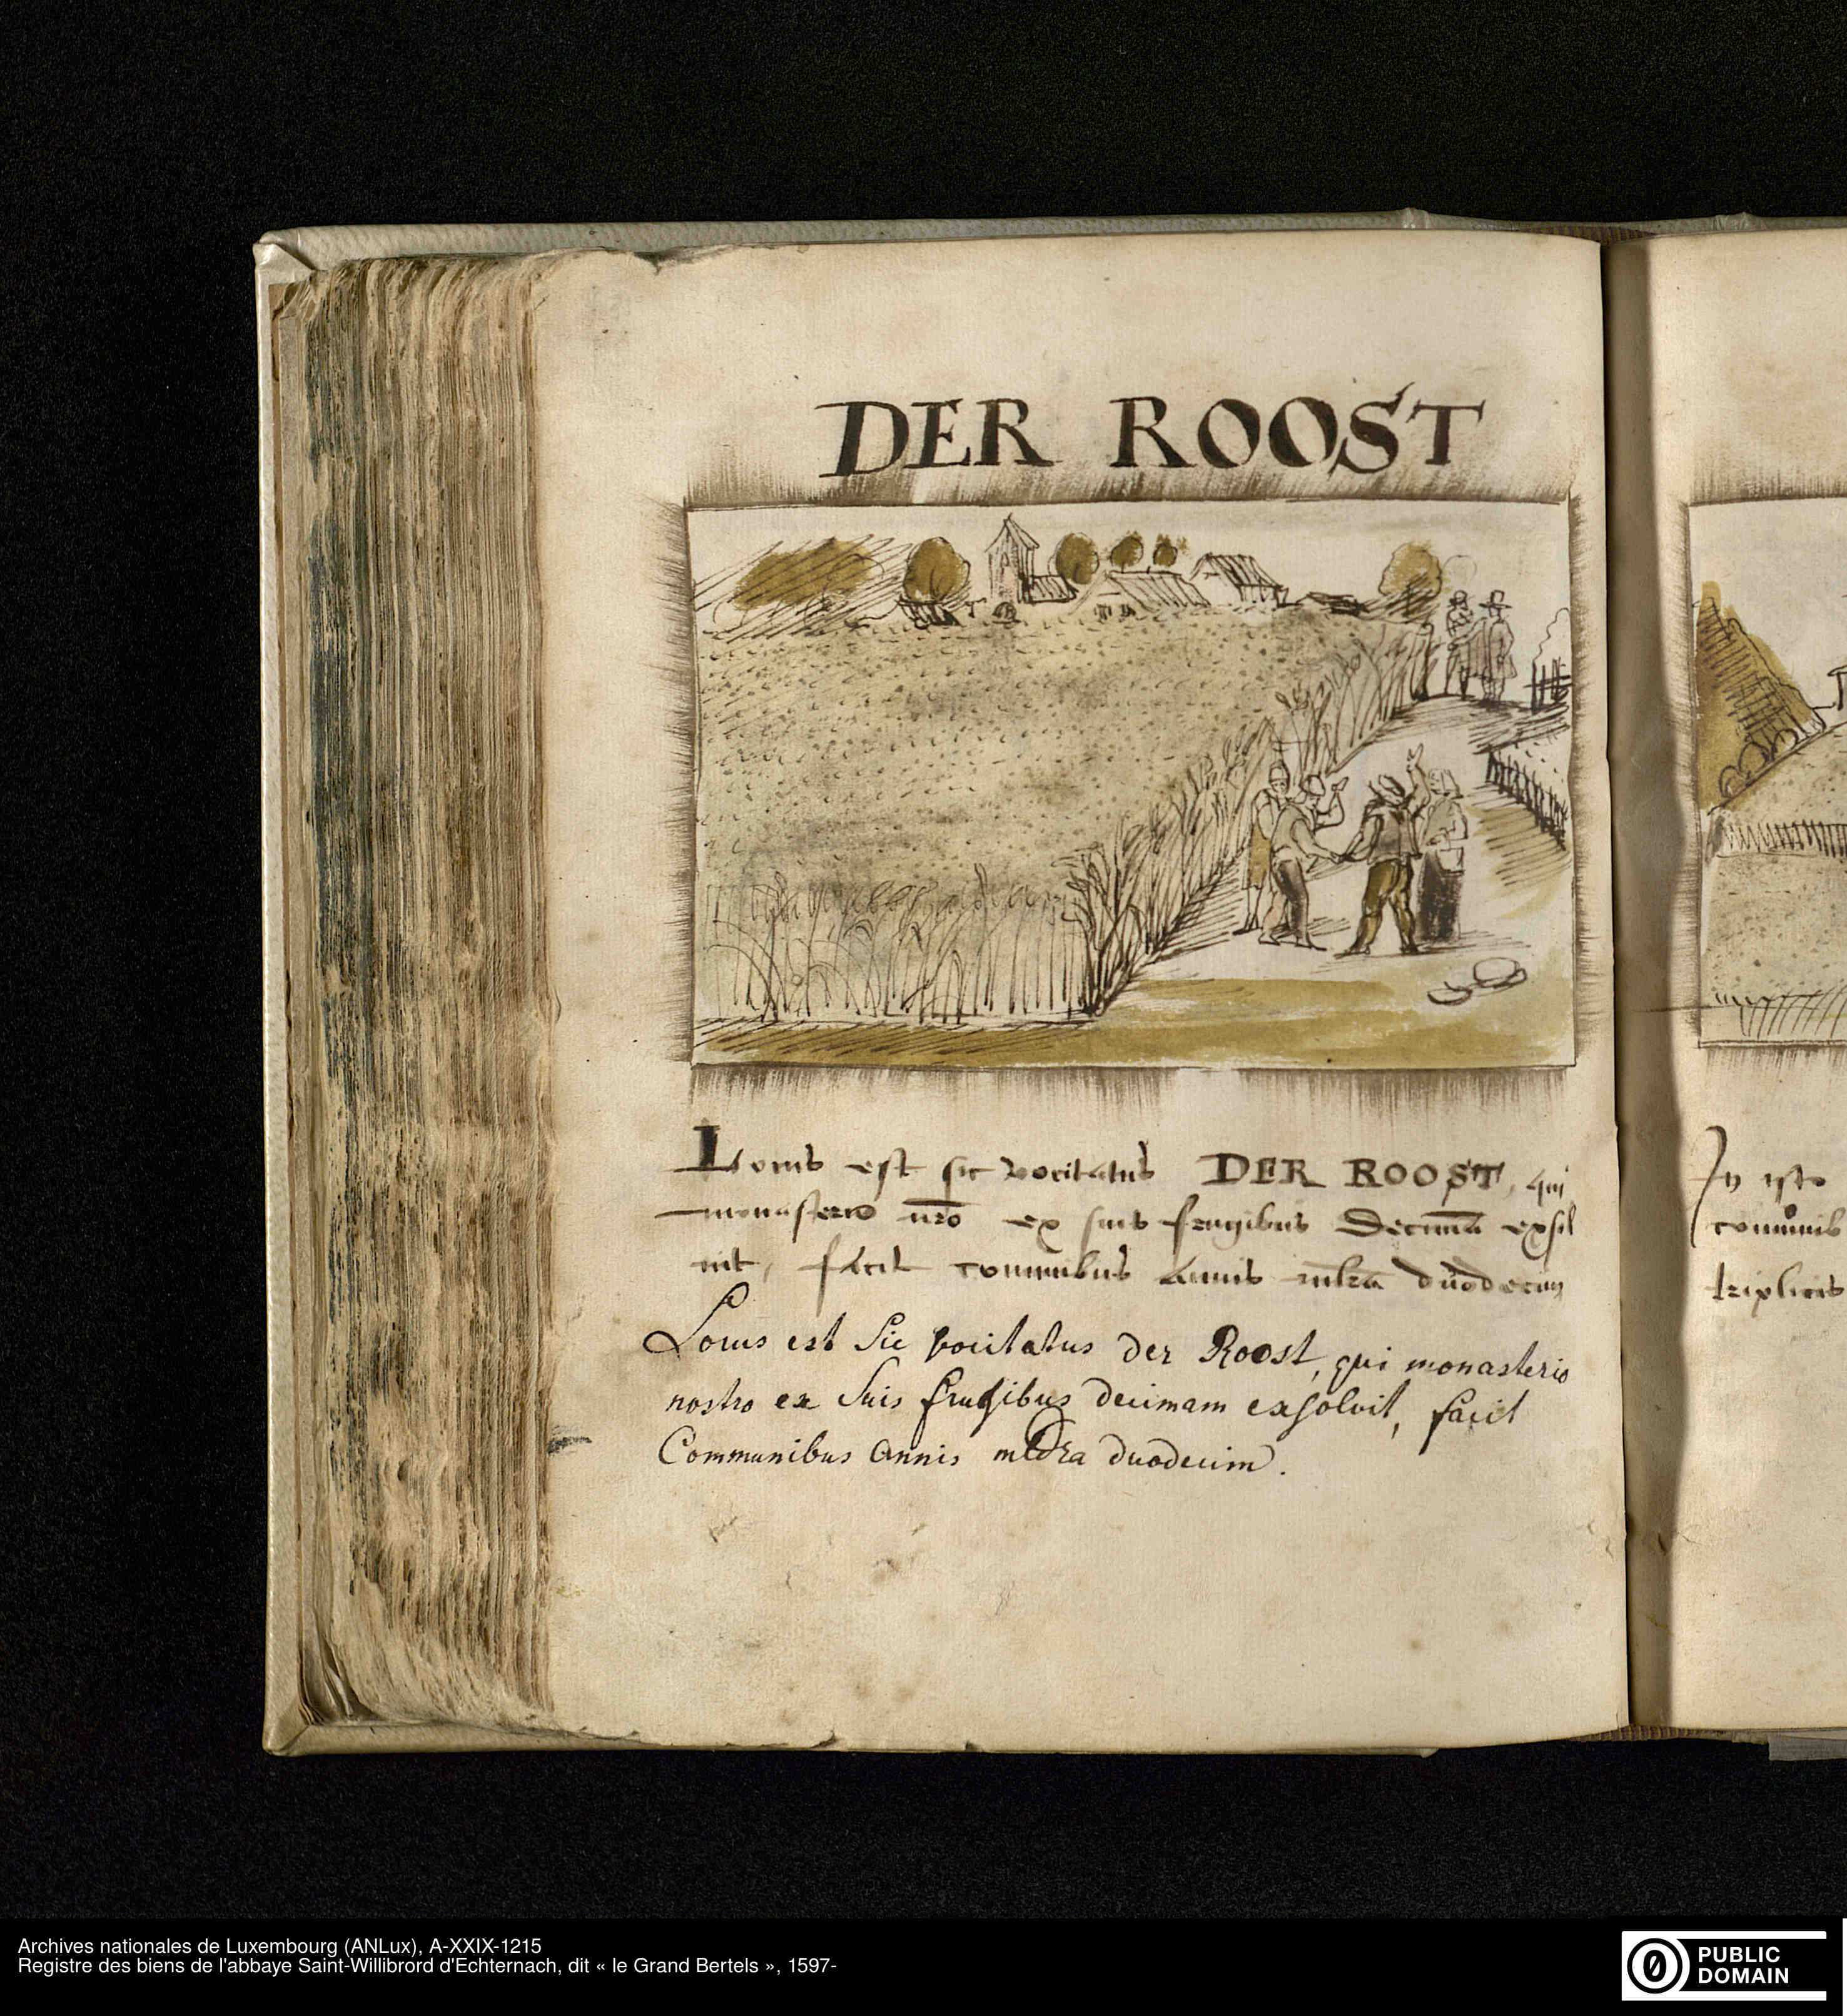 DER ROOST
Locus est sic vocitatus DER ROOST, qui
monasterio nr̄o ex suis frugibus Decimā exsol
uit, facit communibus annis mltra duodecim
Locus est Sic vocitatus der Roost, qui monasterio
nostro ex Suis frugibus decimam exsolvit, facit
Communibus annis mltra duodecim.
In isto
communib
triplicis
Archives nationales de Luxembourg (ANLux), A-XXIX-1215
Registre des biens de l'abbaye Saint-Willibrord d'Echternach, dit « le Grand Bertels », 1597-
PUBLIC
DOMAIN